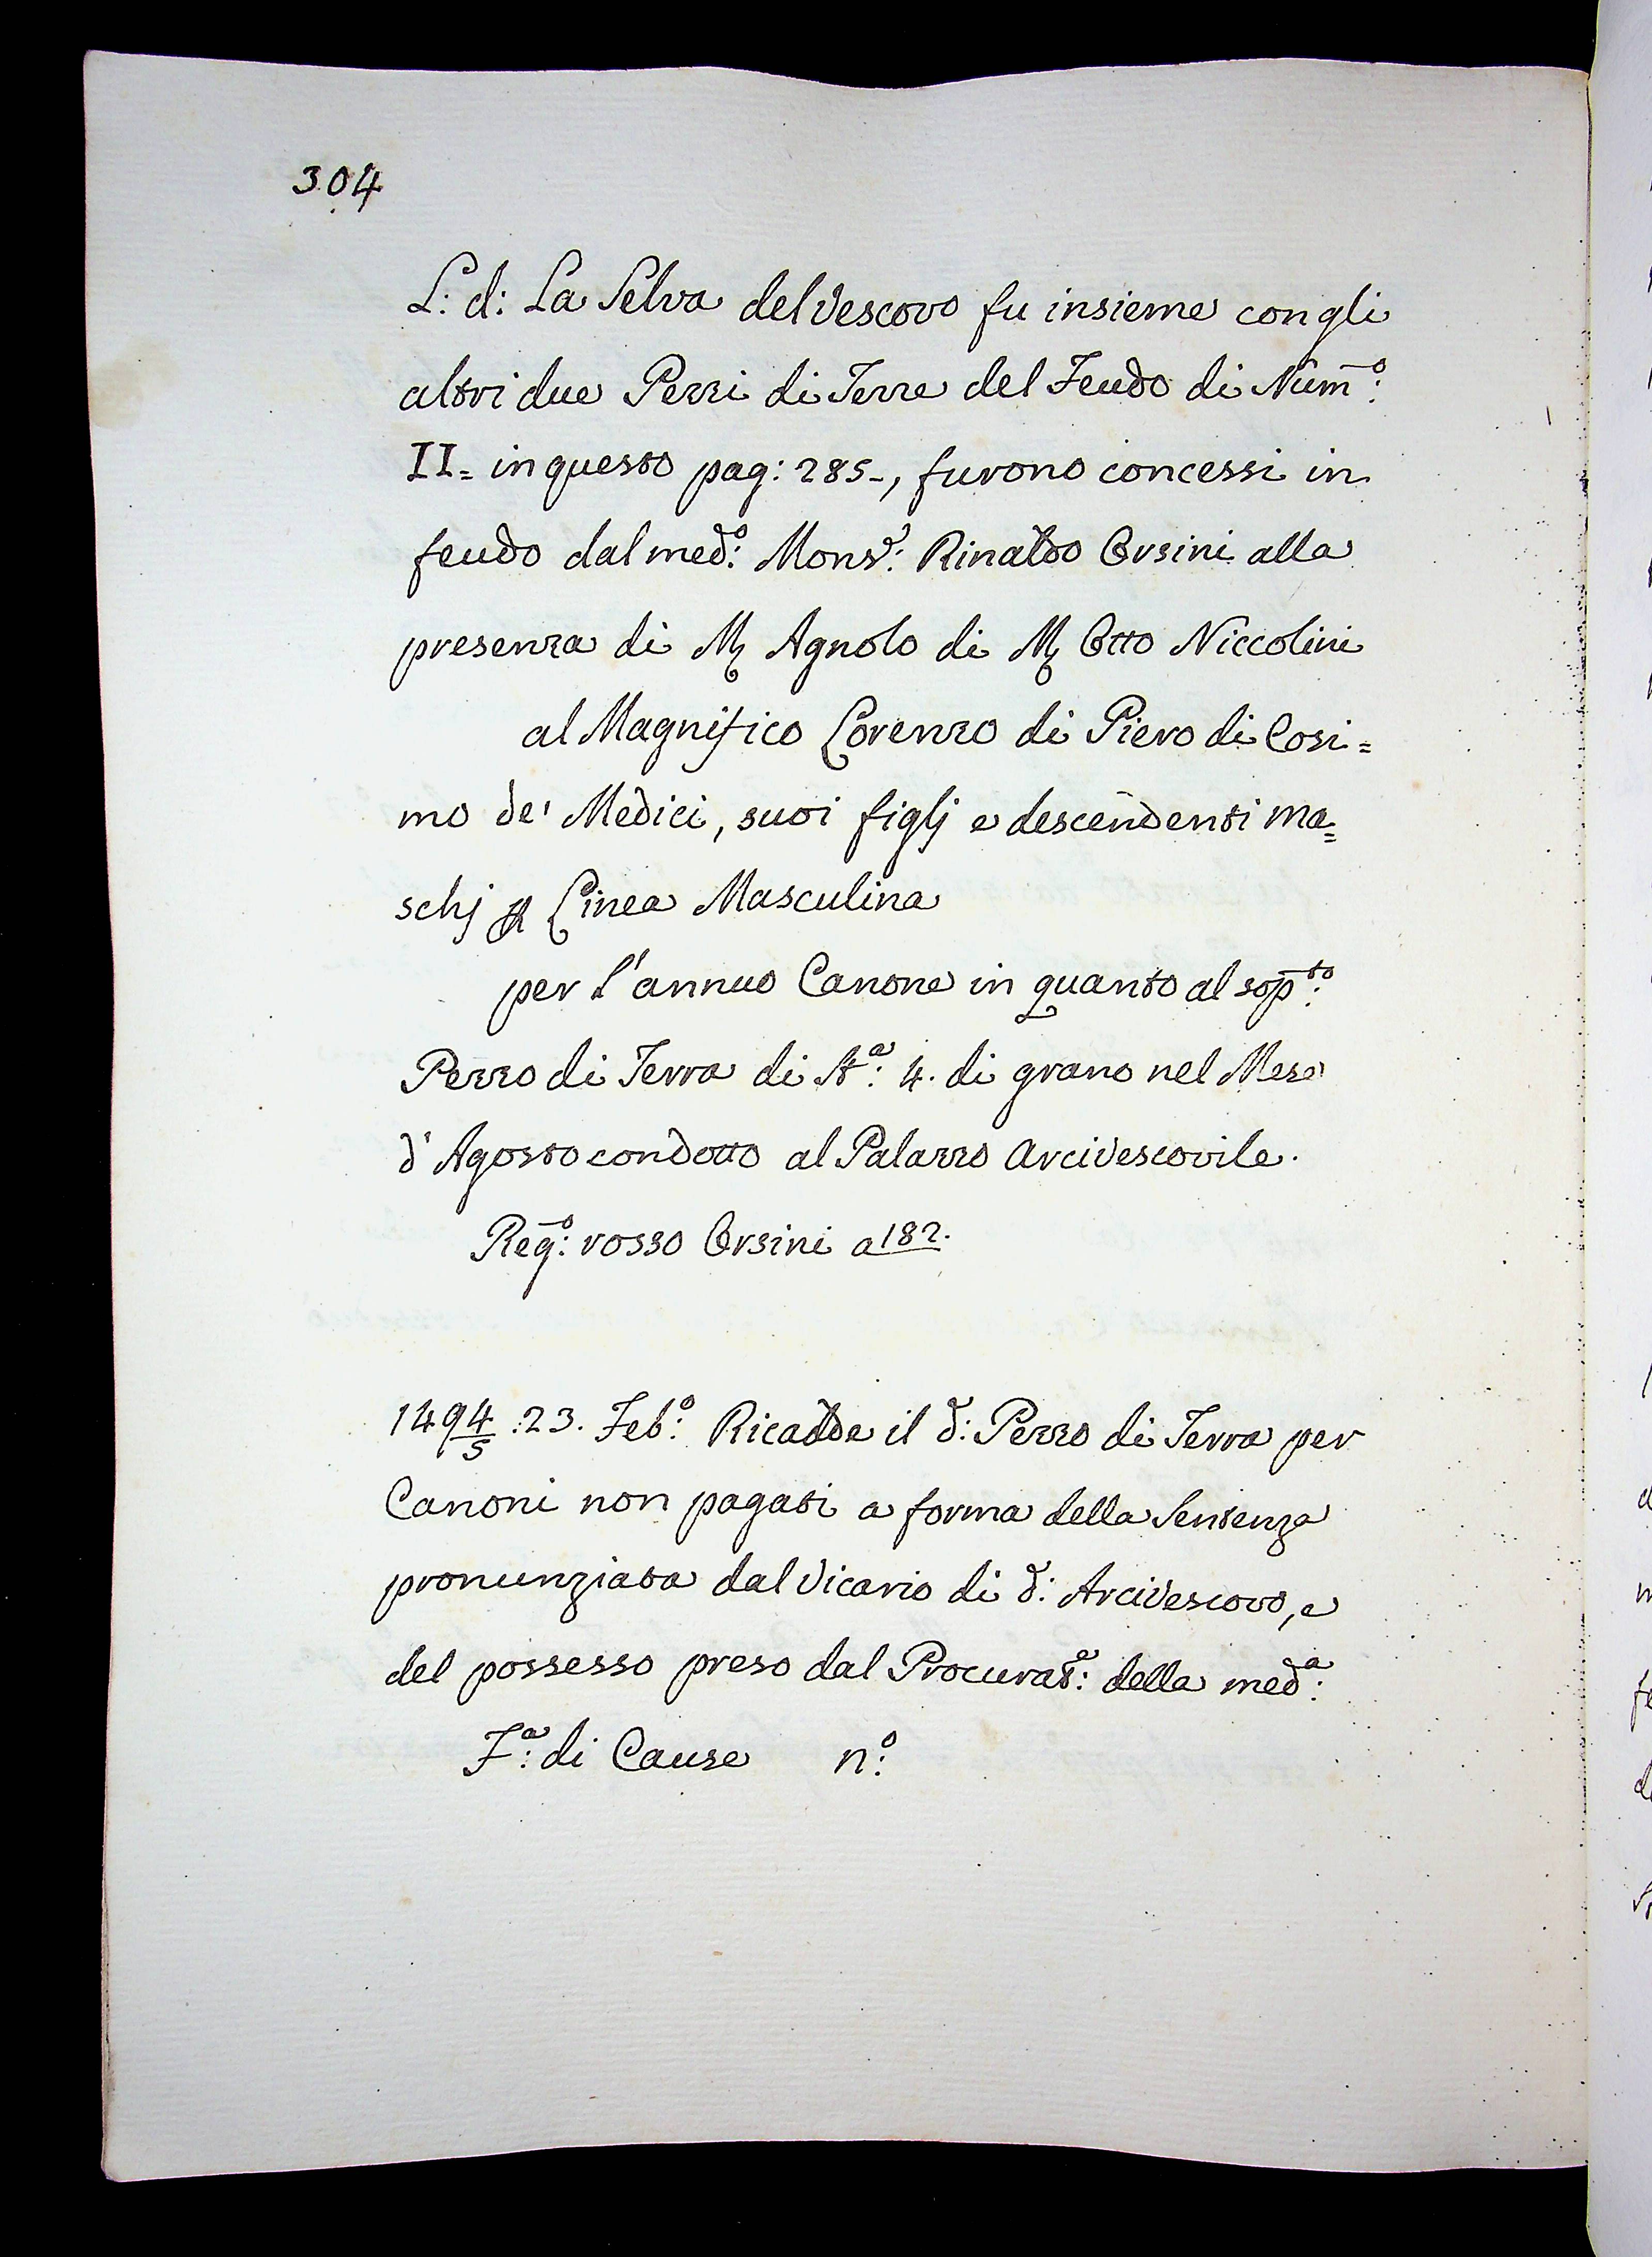 304
L: d: La Selva del Vescovo fu insieme con gli
altri due Pezzi di Terre del Feudo di Num.º:
II= in questo pag: 285-, furono concessi in
feudo dal med.º: Mons.r: Rinaldo Orsini alla
presenza di M Agnolo di M Otto Niccolini
al Magnifico Lorenzo di Piero di Cosi=
mo de' Medici, suoi figlj e descendenti ma=
schj p Linea Masculina
per l'annuo Canone in quanto al sop.to:
Pezzo di Terra di St.a: 4. di grano nel Mese
d'Agosto condotto al Palazzo Arcivescovile.
Reg.º: rosso Orsini a 182.
1494/5 :23. Feb.º: Ricadde il d: Pezzo di Terra per
Canoni non pagati a forma della Sentenza
pronunziata dal Vicario di d: Arcivescovo, e
del possesso preso dal Procurat.e: della med.a:
F.a: di Cause n.º: